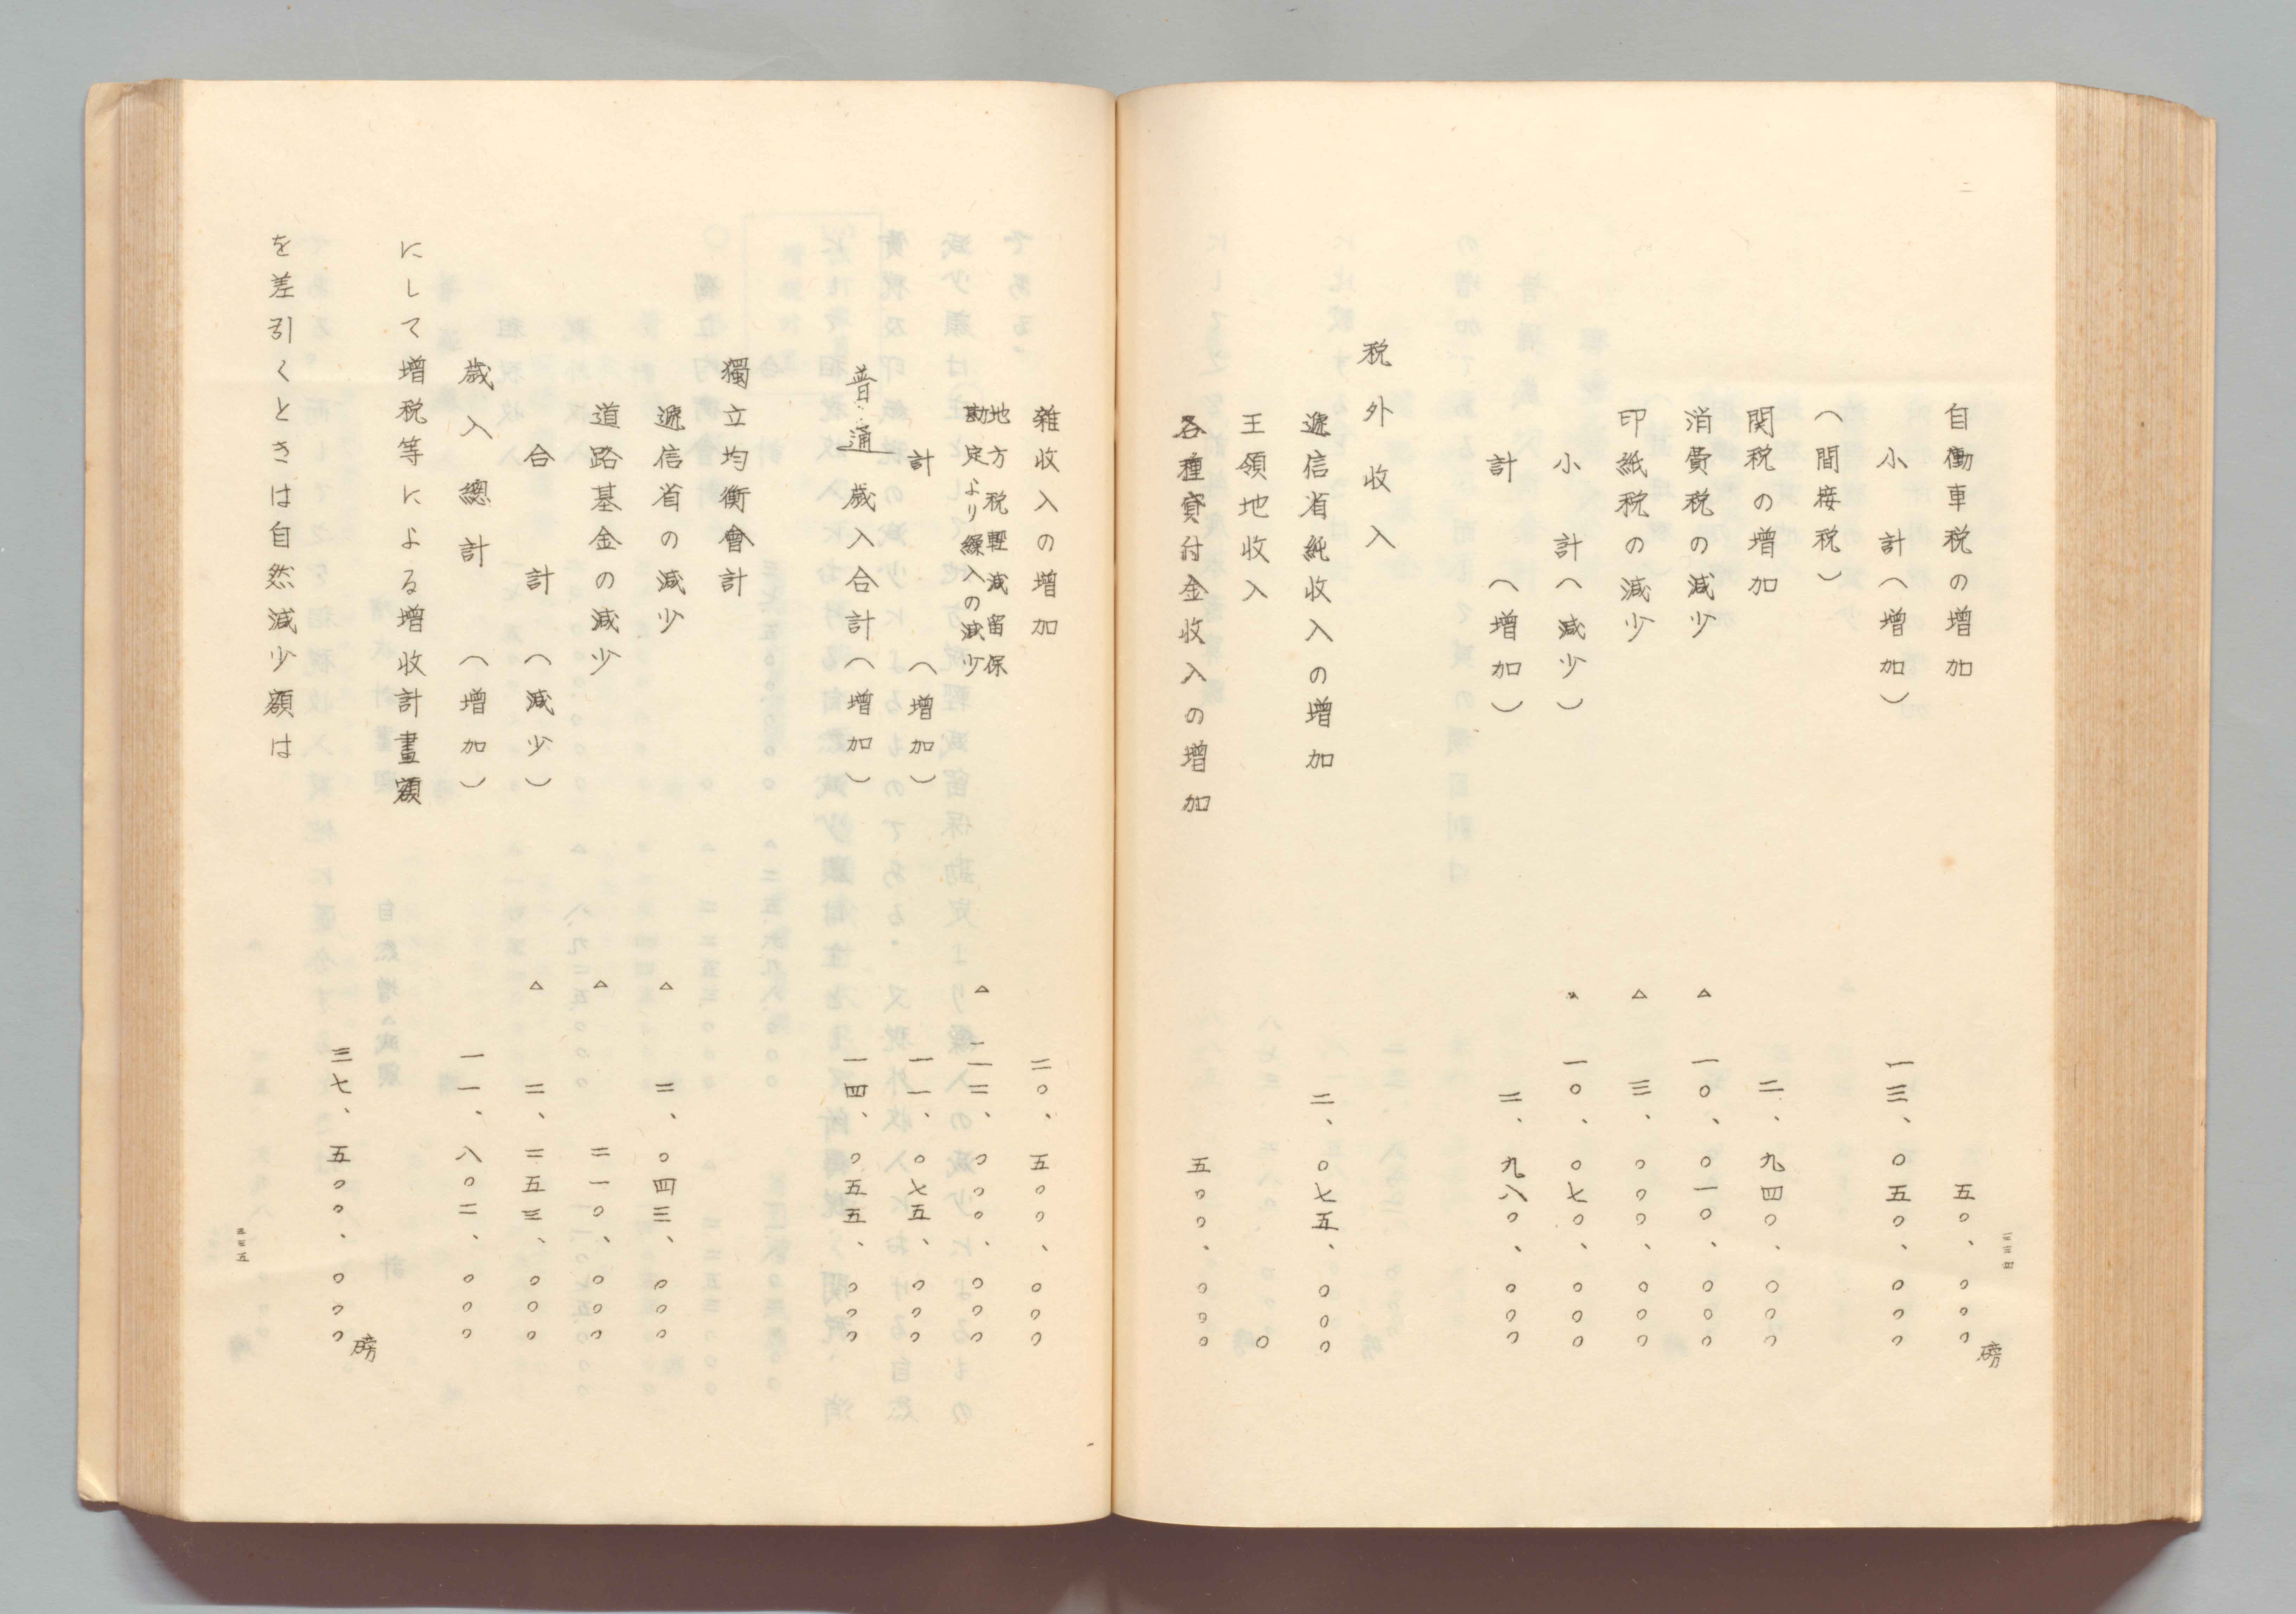 自働車税の増加 五〇、〇〇〇磅
小計(増加) 一三、〇五〇、〇〇〇
(間接税)
関税の増加 二、九四〇、〇〇〇
消費税の減少 △ 一〇、〇一〇、〇〇〇
印紙税の減少 △ 三、〇〇〇、〇〇〇
小計(減少) △ 一〇、〇七〇、〇〇〇
計(増加) 二、九八〇、〇〇〇
税外收入
遞信省純收入の増加 二、〇七五、〇〇〇
王領地收入 〇
各種貸付金收入の増加 五〇〇、〇〇〇
三三四
雑收入の増加 二〇、五〇〇、〇〇〇
地方税輕減留保
勘定より繰入の減少 △ 一二、〇〇〇、〇〇〇
計(増加) 一一、〇七五、〇〇〇
普通歳入合計(増加) 一四、〇五五、〇〇〇
獨立均衡會計
遞信省の減少 △ 二、〇四三、〇〇〇
道路基金の減少 △ 二一〇、〇〇〇
合計(減少) △ 二、二五三、〇〇〇
歳入總計(増加) 一一、八〇二、〇〇〇
にして増税等による増收計畫額
三七、五〇〇、〇〇〇磅
を差引くときは自然減少額は
三三五